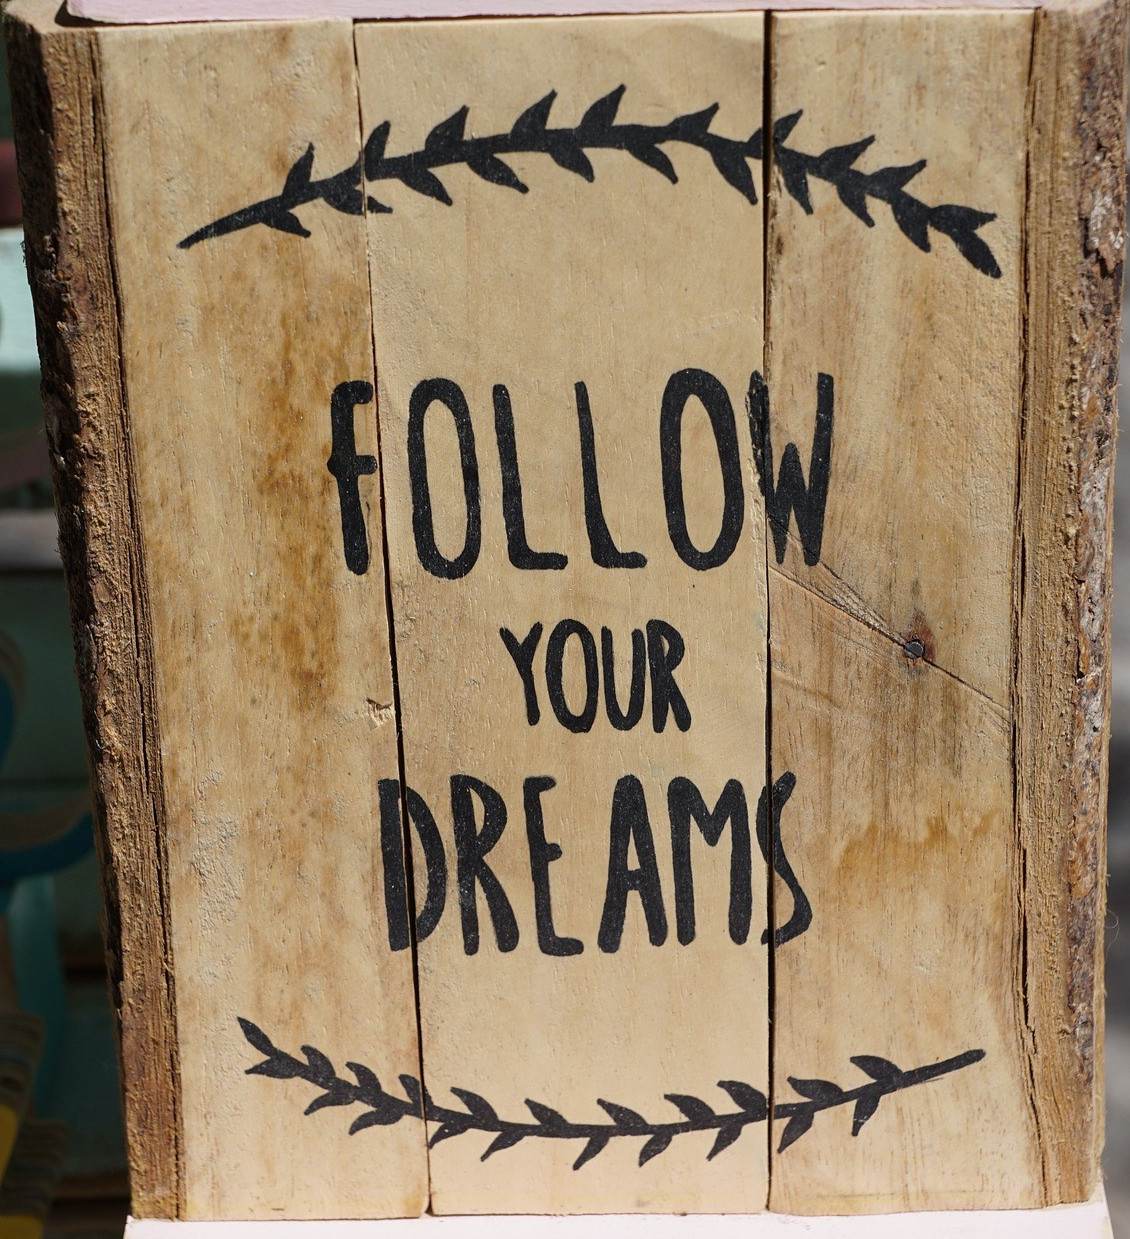 FOLLOW
YOUR
DREAMS